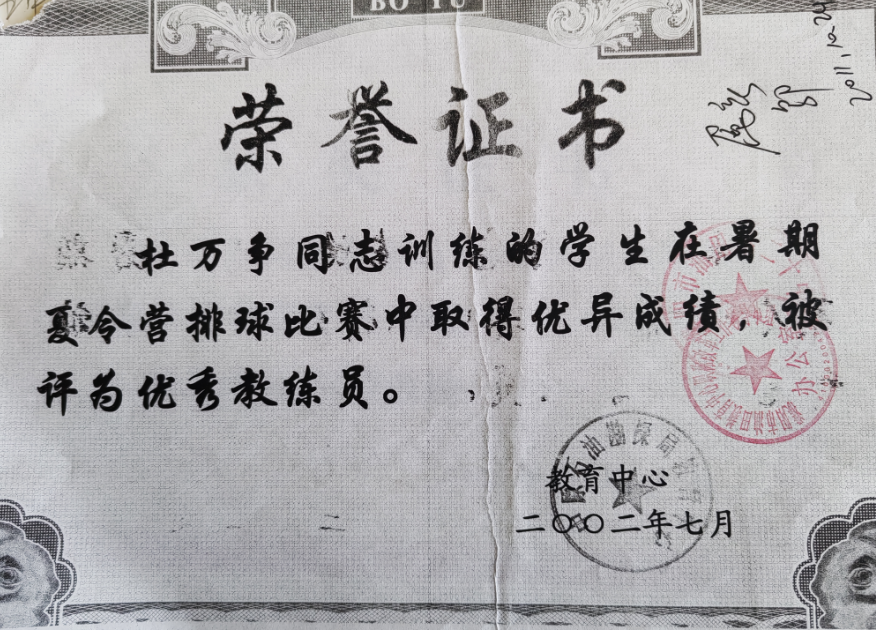 BO YU
2011.10.24
荣誉证书
杜万争同志训练的学生在暑期
夏令营排球比赛中取得优异成绩,被
评为优秀教练员。
教育中心
二〇〇二年七月
办公室